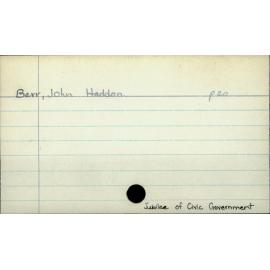 Barr, John Haddon. p20
Jubilee of Civic Government